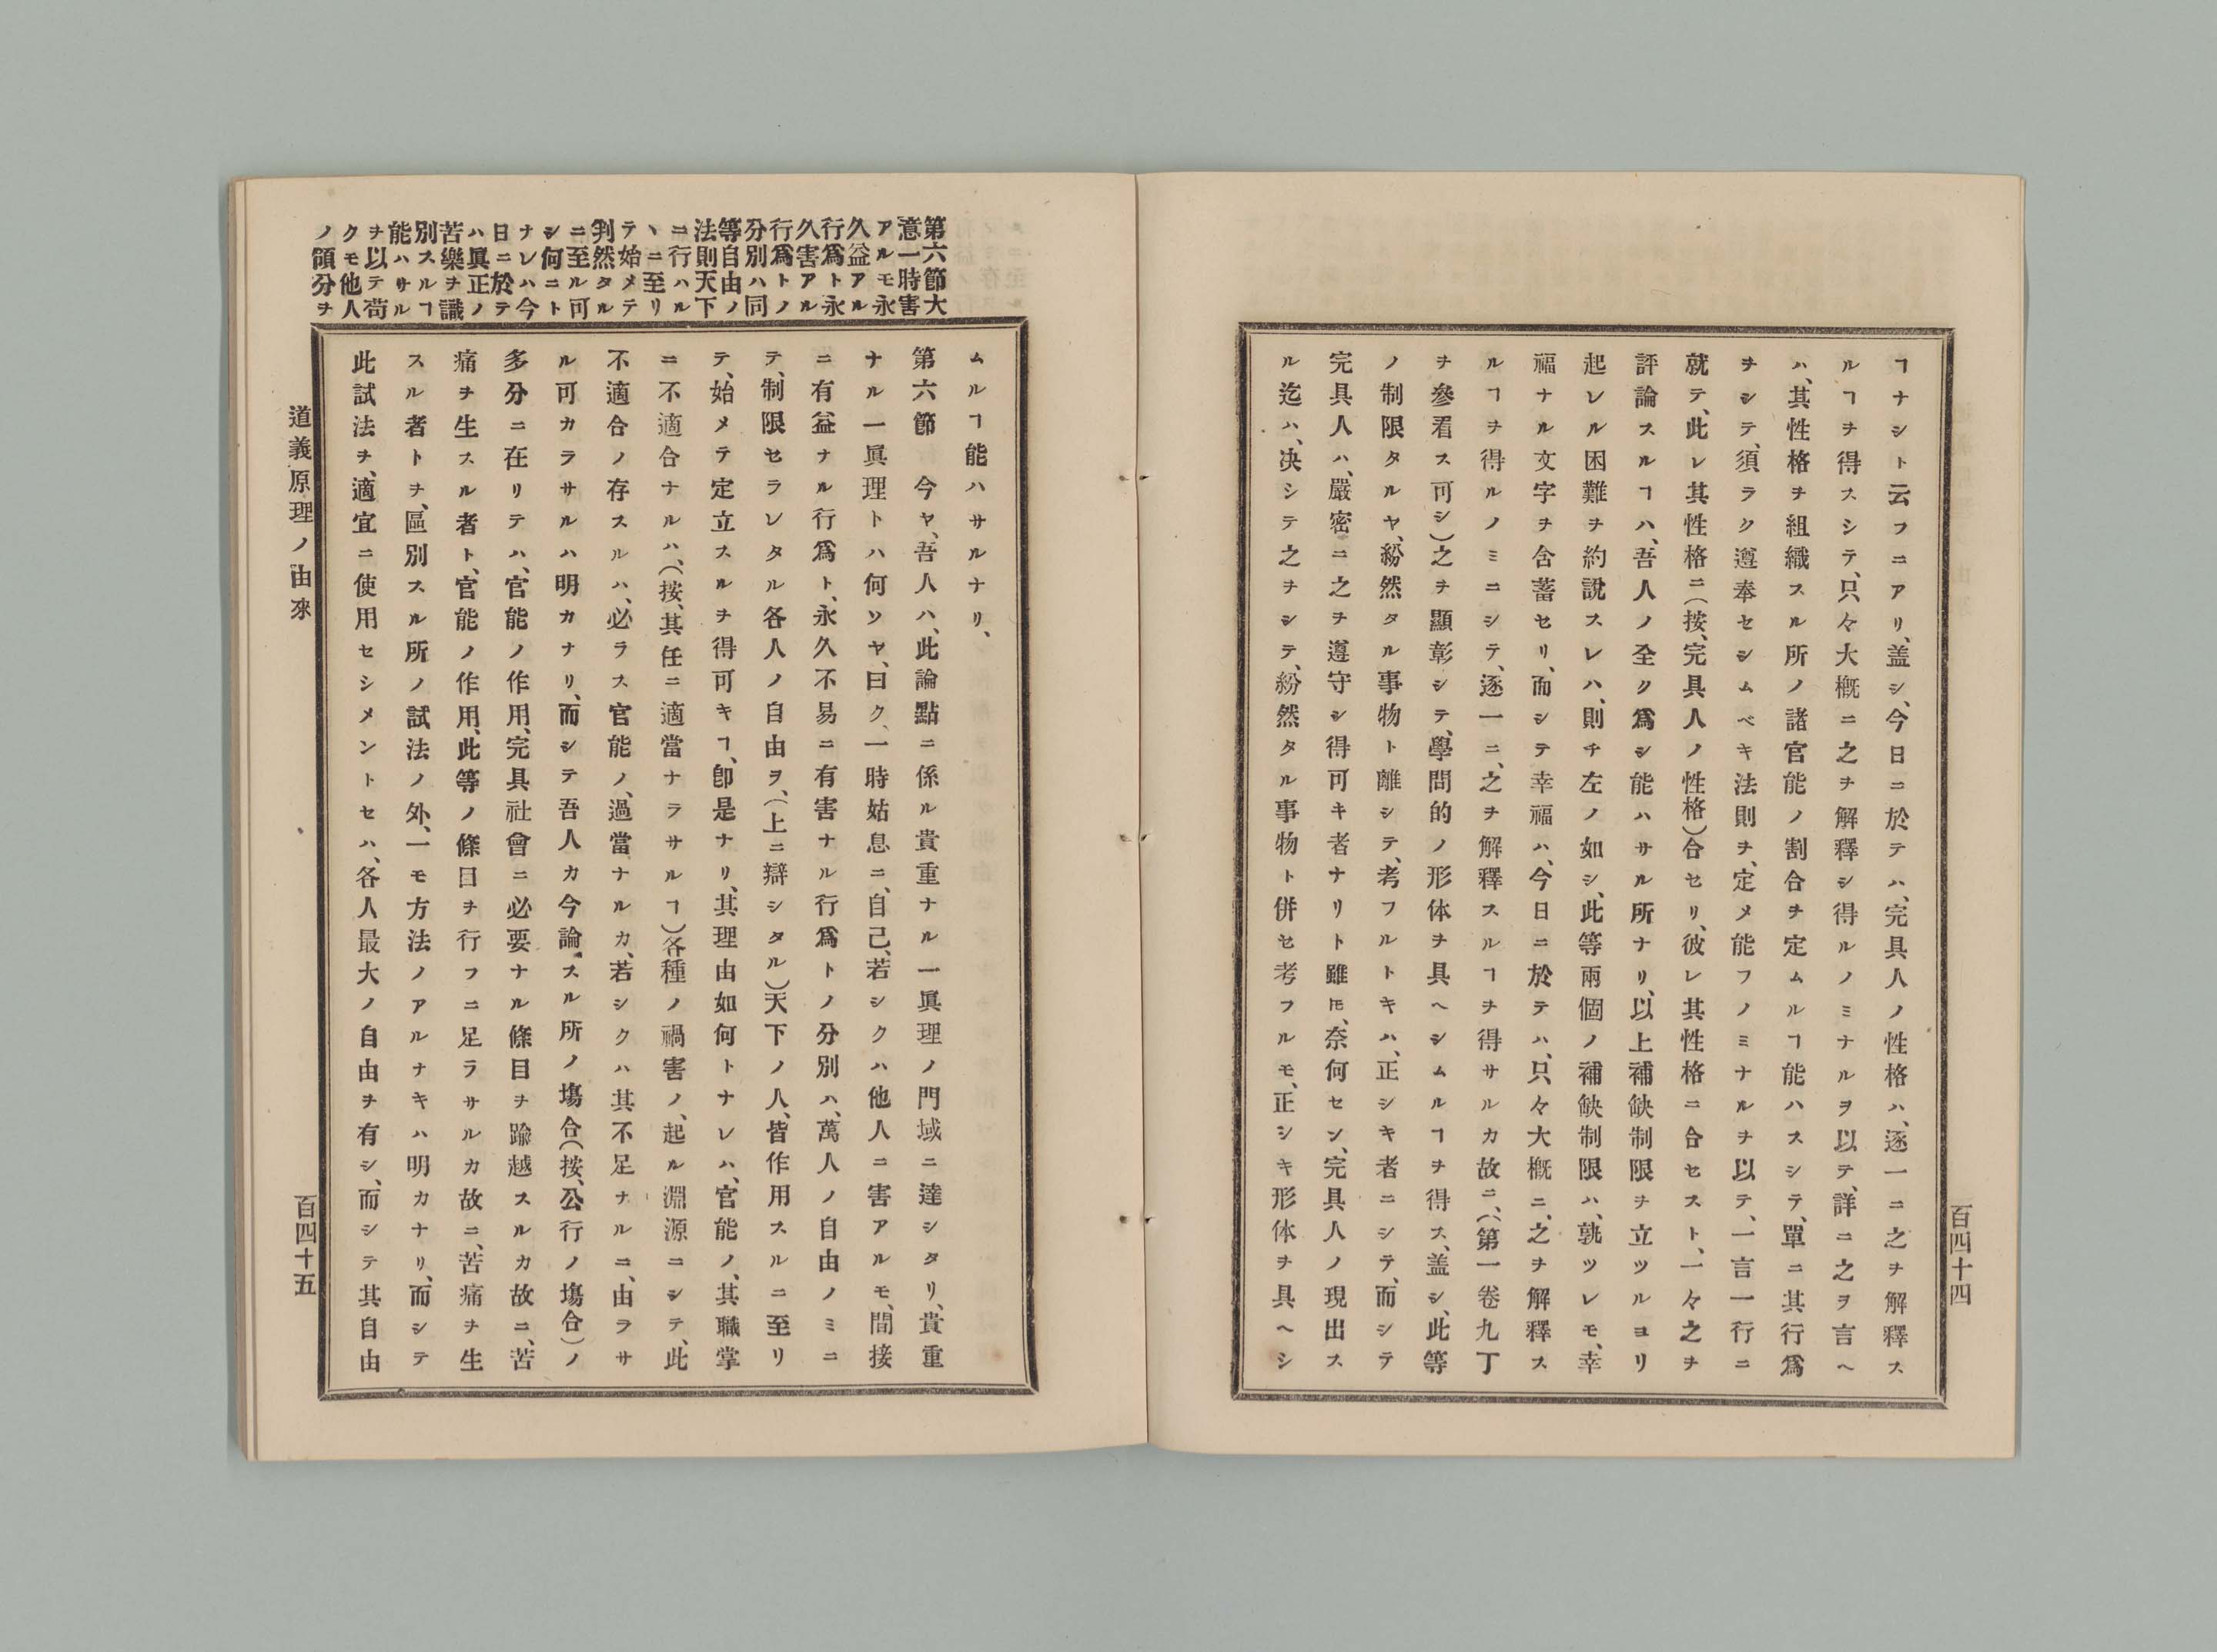 ヿナシト云フニアリ、盖シ、今日ニ於テハ、完具人ノ性格ハ、逐一ニ之ヲ解釋ス
ルヿヲ得スシテ、只々大概ニ之ヲ解釋シ得ルノミナルヲ以テ、詳ニ之ヲ言ヘ
ハ、其性格ヲ組織スル所ノ諸官能ノ割合ヲ定ムルヿ能ハスシテ、單ニ其行爲
ヲシテ、須ラク遵奉セシムベキ法則ヲ、定メ能フノミナルヲ以テ、一言一行ニ
就テ、此レ其性格ニ(按、完具人ノ性格)合セリ、彼レ其性格ニ合セスト、一々之ヲ
評論スルヿハ、吾人ノ全ク爲シ能ハサル所ナリ、以上補缺制限ヲ立ツルヨリ
起レル困難ヲ約說スレハ、則チ左ノ如シ、此等兩個ノ補缺制限ハ、孰ツレモ、幸
福ナル文字ヲ含蓄セリ、而シテ幸福ハ、今日ニ於テハ、只々大概ニ、之ヲ解釋ス
ルヿヲ得ルノミニシテ、逐一ニ、之ヲ解釋スルヿヲ得サルカ故ニ、(第一卷九丁
ヲ參看ス可シ)之ヲ顯彰シテ、學問的ノ形体ヲ具ヘシムルヿヲ得ス、盖シ、此等
ノ制限タルヤ、紛然タル事物ト離シテ、考フルトキハ、正シキ者ニシテ、而シテ
完具人ハ、嚴密ニ之ヲ遵守シ得可キ者ナリト雖𪜈、奈何セン、完具人ノ現出ス
ル迄ハ、决シテ之ヲシテ、紛然タル事物ト併セ考フルモ、正シキ形体ヲ具ヘシ
百四十四
第六節大
意一時害
アルモ永
久益アル
行爲ト永
久害アル
行爲トノ
分別ハ同
等自由ノ
法則天下
ニ行ハル
ヽニ至リ
テ始メテ
判然タル
ニ至ル可
シ何ニト
ナレハ今
日ニ於テ
ハ眞正ノ
苦樂ヲ識
別スルヿ
能ハサル
ヲ以テ苟
クモ他人
ノ領分ヲ
ムルヿ能ハサルナリ、
第六節　今ヤ、吾人ハ、此論點ニ係ル貴重ナル一眞理ノ門域ニ達シタリ、貴重
ナル一眞理トハ何ソヤ、曰ク、一時姑息ニ、自己、若シクハ他人ニ害アルモ、間接
ニ有益ナル行爲ト、永久不易ニ有害ナル行爲トノ分別ハ、萬人ノ自由ノミニ
テ、制限セラレタル各人ノ自由ヲ、(上ニ辯シタル)天下ノ人、皆作用スルニ至リ
テ、始メテ定立スルヲ得可キヿ、卽是ナリ、其理由如何トナレハ、官能ノ、其職掌
ニ不適合ナルハ、(按、其任ニ適當ナラサルヿ)各種ノ禍害ノ、起ル淵源ニシテ、此
不適合ノ存スルハ、必ラス官能ノ、過當ナルカ、若シクハ其不足ナルニ、由ラサ
ル可カラサルハ明カナリ、而シテ吾人カ今論スル所ノ塲合(按、公行ノ塲合)ノ
多分ニ在リテハ、官能ノ作用、完具社會ニ必要ナル條目ヲ踰越スルカ故ニ、苦
痛ヲ生スル者ト、官能ノ作用、此等ノ條目ヲ行フニ足ラサルカ故ニ、苦痛ヲ生
スル者トヲ、區別スル所ノ試法ノ外、一モ方法ノアルナキハ明カナリ、而シテ
此試法ヲ、適宜ニ使用セシメントセハ、各人最大ノ自由ヲ有シ、而シテ其自由
道義原理ノ由來
百四十五